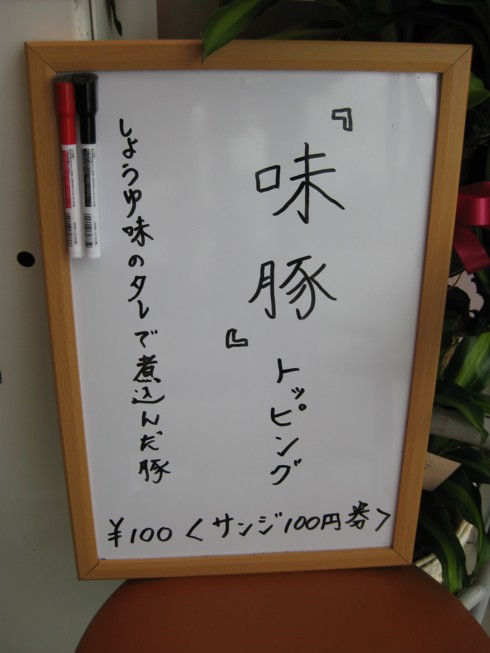 『味豚』トッピング
しょうゆ味のタレで煮込んだ豚
¥100<サンジ100円券>